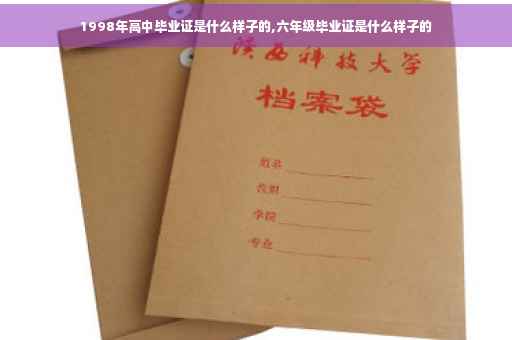 1998年高中毕业证是什么样子的,六年级毕业证是什么样子的
陕西科技大学
档案袋
姓名
学院
专业